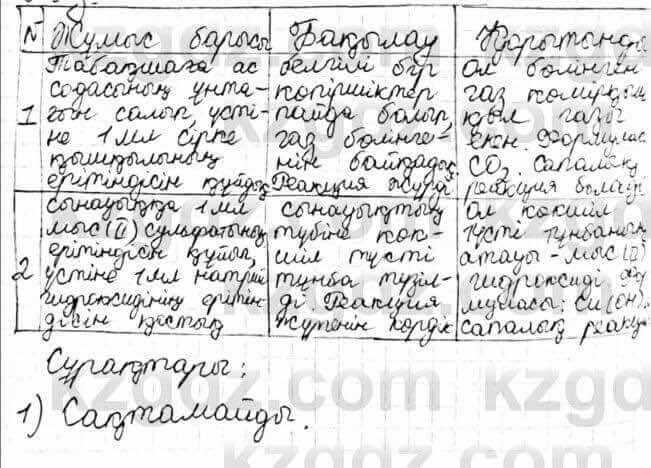 № Жұмыс барысы Бақылау Қорытынды
1
Табақшаға ас
содасының ұнта-
ғын салып, үсті-
не 1 мл сірке
қышқылының
ерітіндісін құйдық
белгілі бір
көпіршіктер
пайда болып,
газ бөлінге-
нін байқадық.
Реакция жүрді
Ол бөлінген
газ көмірқыш
қыл газы
екен. Формуласы
CO₂. Сапалық
реакция болып
2
сынауыққа 1 мл
мыс (II) сульфатының
ерітіндісін құйып,
үстіне 1 мл натрий
гидроксидінің ерітін
дісін қостық
сынауықтың
түбіне көк-
шіл түсті
тұнба түзіл-
ді Реакция
жүргенін көрдік
Ол көкшіл
түсті тұнбаның
атауы - мыс (II)
гидроксиді фор
муласы: Cu(OH)₂
сапалық реакция
Сұрақтары:
1) Сақтамайды.
kzgdz.com kzgdz
kzgdz.com kzgdz